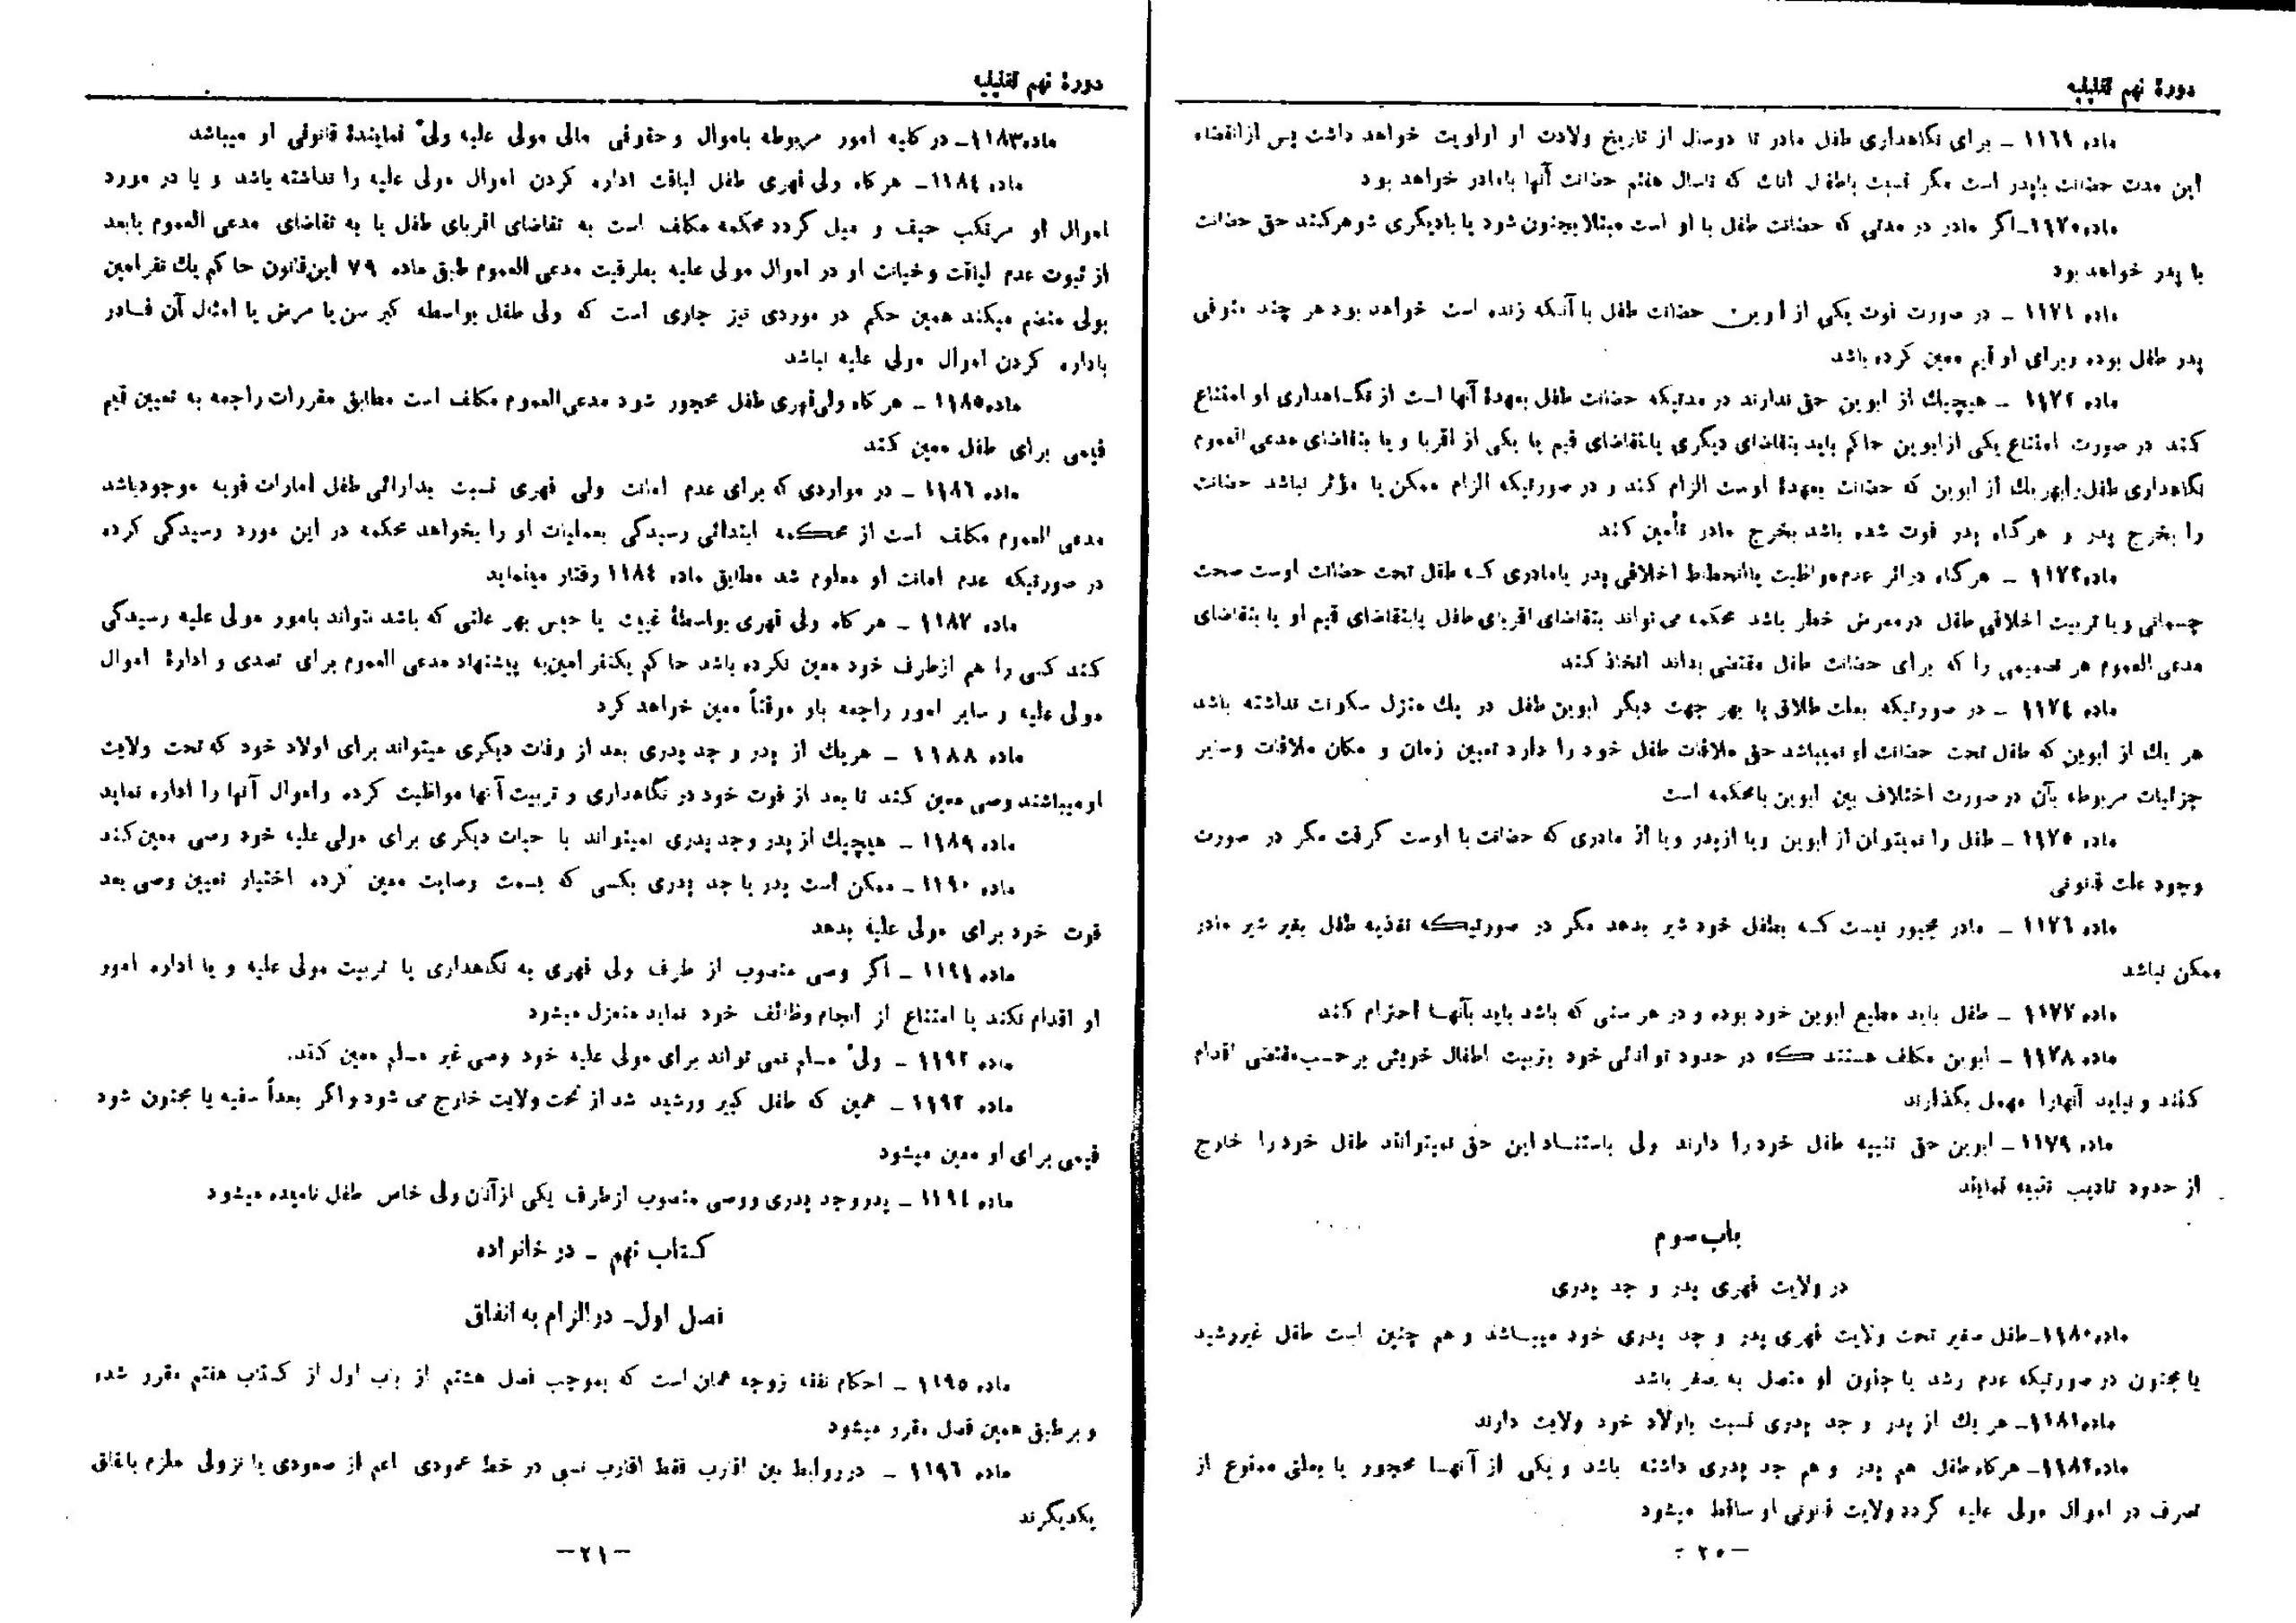 دورهٔ نهم تقنینیه
ماده ۱۱۶۹ ـ برای نگاهداری طفل مادر تا دوسال از تاریخ ولادت او اولویت خواهد داشت پس ازانقضاء
این مدت حضانت باپدر است مگر نسبت باطفال اناث که تاسال هفتم حضانت آنها بامادر خواهد بود
ماده۱۱۷۰ـ اگر مادر در مدتی که حضانت طفل با او است مبتلا بجنون شود یا بادیگری شوهرکند حق حضانت
با پدر خواهد بود
ماده ۱۱۷۱ ـ در صورت فوت یکی از ابوین حضانت طفل با آنکه زنده است خواهد بود هر چند متوفی
پدر طفل بوده وبرای او قیم معین کرده باشد
ماده ۱۱۷۲ ـ هیچیك از ابوین حق ندارند در مدتیکه حضانت طفل بعهدهٔ آنها است از نگاهداری او امتناع
کنند در صورت امتناع یکی ازابوین حاکم باید بتقاضای دیگری یابتقاضای قیم یا یکی از اقربا و یا بتقاضای مدعی العموم
نگاهداری طفل رابهریك از ابوین که حضانت بعهدهٔ اوست الزام کند و در صورتیکه الزام ممکن یا مؤثر نباشد حضانت
را بخرج پدر و هرگاه پدر فوت شده باشد بخرج مادر تأمین کند
ماده۱۱۷۳ ـ هرگاه دراثر عدم‌مواظبت یاانحطاط اخلاقی پدر یامادری که طفل تحت حضانت اوست صحت
جسمانی و یا تربیت اخلاقی طفل درمعرض خطر باشد محکمه می تواند بتقاضای اقربای طفل یابتقاضای قیم او یا بتقاضای
مدعی العموم هر تصمیمی را که برای حضانت طفل مقتضی بداند اتخاذ کند
ماده ۱۱۷٤ ـ در صورتیکه بعلت طلاق یا بهر جهت دیگر ابوین طفل در یك منزل سکونت نداشته باشد
هر یك از ابوین که طفل تحت حضانت او نمیباشد حق ملاقات طفل خود را دارد تعیین زمان و مکان ملاقات وسایر
جزئیات مربوطه بآن درصورت اختلاف بین ابوین بامحکمه است
ماده ۱۱۷۵ ـ طفل را نمیتوان از ابوین ویا ازپدر ویا از مادری که حضانت با اوست گرفت مگر در صورت
وجود علت قانونی
ماده ۱۱۷٦ ـ مادر مجبور نیست که بطفل خود شیر بدهد مگر در صورتیکه تغذیه طفل بغیر شیر مادر
ممکن نباشد
ماده ۱۱۷۷ ـ طفل باید مطیع ابوین خود بوده و در هر سنی که باشد باید بآنها احترام کند
ماده ۱۱۷۸ ـ ابوین مکلف هستند که در حدود توانائی خود بتربیت اطفال خویش بر حسب‌مقتضی اقدام
کنند و نباید آنهارا مهمل بگذارند
ماده ۱۱۷۹ ـ ابوین حق تنبیه طفل خودرا دارند ولی باستناد این حق نمیتوانند طفل خودرا خارج
از حدود تادیب تنبیه نمایند
باب سوم
در ولایت قهری پدر و جد پدری
ماده۱۱۸۰ـ طفل صغیر تحت ولایت قهری پدر و جد پدری خود میباشد و هم چنین است طفل غیررشید
یا مجنون در صورتیکه عدم رشد یا جنون او متصل به صغر باشد
ماده۱۱۸۱ـ هر یك از پدر و جد پدری نسبت باولاد خود ولایت دارند
ماده۱۱۸۲ـ هرگاه طفل هم پدر و هم جد پدری داشته باشد و یکی از آنها محجور یا بعلتی ممنوع از
تصرف در اموال مولی علیه گردد ولایت قانونی او ساقط میشود
ـ ۲۰ ـ
دورهٔ نهم تقنینیه
ماده۱۱۸۳ـ در کلیه امور مربوطه باموال و حقوقی مالی مولی علیه ولیّ نمایندهٔ قانونی او میباشد
ماده ۱۱۸٤ـ هرگاه ولی قهری طفل لیاقت اداره کردن اموال مولی علیه را نداشته باشد و یا در مورد
اموال او مرتکب حیف و میل گردد محکمه مکلف است به تقاضای اقربای طفل یا به تقاضای مدعی العموم بابعد
از ثبوت عدم لیاقت وخیانت او در اموال مولی علیه بطرفیت مدعی العموم طبق ماده ۷۹ این‌قانون حاکم یك نفرامین
بولی منضم میکند همین حکم در موردی نیز جاری است که ولی طفل بواسطه کبر سن یا مرض یا امثال آن قادر
باداره کردن اموال مولی علیه نباشد
ماده۱۱۸۵ ـ هرگاه ولی‌قهری طفل محجور شود مدعی‌العموم مکلف است مطابق مقررات راجعه به تعیین قیم
قیمی برای طفل معین کند
ماده ۱۱۸٦ ـ در مواردی که برای عدم امانت ولی قهری نسبت بدارائی طفل امارات قویه موجودباشد
مدعی العموم مکلف است از محکمه ابتدائی رسیدگی بعملیات او را بخواهد محکمه در این مورد رسیدگی کرده
در صورتیکه عدم امانت او معلوم شد مطابق ماده ۱۱۸٤ رفتار مینماید
ماده ۱۱۸۷ ـ هرگاه ولی قهری بواسطهٔ غیبت یا حبس بهر علتی که باشد نتواند بامور مولی علیه رسیدگی
کند کسی را هم ازطرف خود معین نکرده باشد حاکم یکنفر امین‌به پیشنهاد مدعی العموم برای تصدی و ادارهٔ اموال
مولی علیه و سایر امور راجعه باو موقتاً معین خواهد کرد
ماده ۱۱۸۸ ـ هریك از پدر و جد پدری بعد از وفات دیگری میتواند برای اولاد خود که تحت ولایت
او میباشند وصی معین کند تا بعد از فوت خود در نگاهداری و تربیت آنها مواظبت کرده واموال آنها را اداره نماید
ماده ۱۱۸۹ ـ هیچیك از پدر وجد پدری نمیتواند با حیات دیگری برای مولی علیه خود وصی معین‌کند
ماده ۱۱۹۰ ـ ممکن است پدر یا جد پدری بکسی که بسمت وصایت معین کرده اختیار تعیین وصی بعد
فوت خود برای مولی علیه بدهد
ماده ۱۱۹۱ ـ اگر وصی منصوب از طرف ولی قهری به نگاهداری یا تربیت مولی علیه و یا اداره امور
او اقدام نکند یا امتناع از انجام وظائف خود نماید منعزل میشود
ماده ۱۱۹۲ ـ ولیّ مسلم نمی تواند برای مولی علیه خود وصی غیر مسلم معین کند.
ماده ۱۱۹۳ ـ همین که طفل کبیر ورشید شد از تحت ولایت خارج می شود و اگر بعداً سفیه یا مجنون شود
قیمی برای او معین میشود
ماده ۱۱۹٤ ـ پدر وجد پدری ووصی منصوب ازطرف یکی ازآنان ولی خاص طفل نامیده میشود
کتاب نهم ـ در خانواده
فصل اول ـ در الزام به انفاق
ماده ۱۱۹۵ ـ احکام نفقه زوجه همان است که بموجب فصل هشتم از باب اول از کتاب هفتم مقرر شده
و برطبق همین فصل مقرر میشود
ماده ۱۱۹٦ ـ درروابط بین اقارب فقط اقارب نسبی در خط عمودی اعم از صعودی یا نزولی ملزم بانفاق
یکدیگرند
ـ۲۱ـ